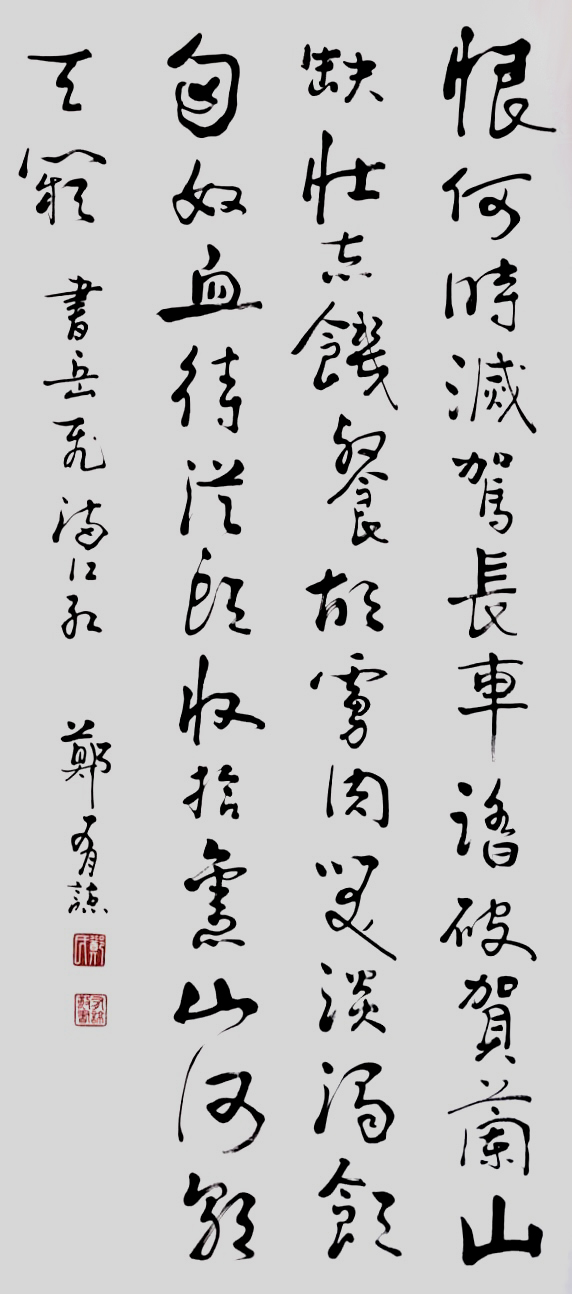 恨何時滅駕長車踏破賀蘭山
缺壯志饑餐胡虜肉笑談渴飲
匈奴血待從頭收拾舊山河朝
天闕 書岳飛滿江紅 鄭有